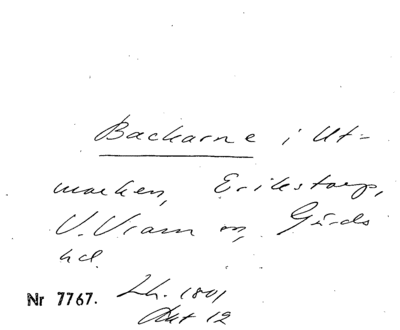 Backarne i Ut-
marken, Erikstorp,
V. Vram sn, Gärds
hd.
Nr 7767. Lh. 1801
Akt 12